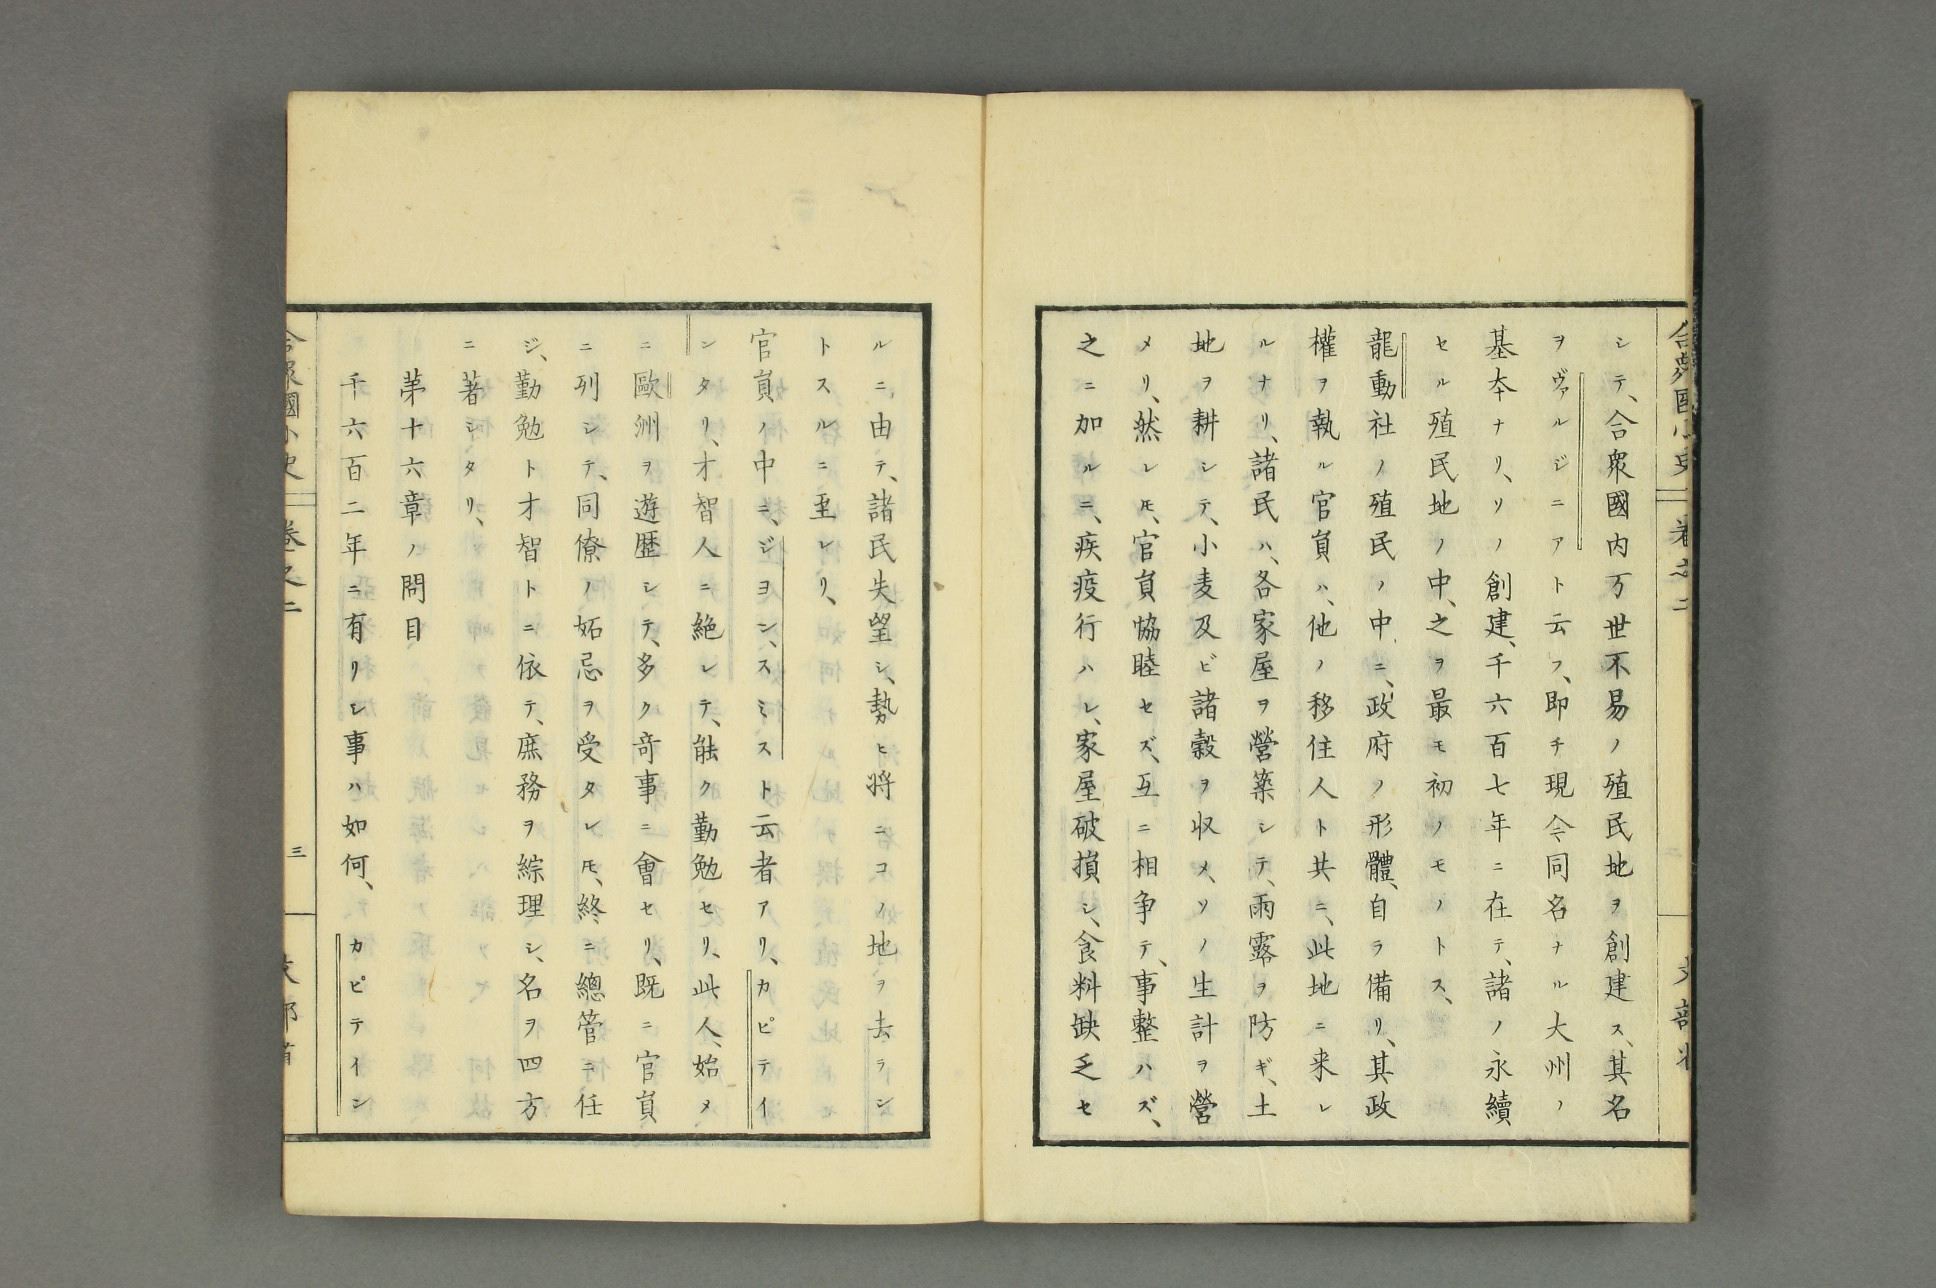 シテ、合衆國内万世不易ノ殖民地ヲ創建ス、其名
ヲヴァルジニアト云フ、即チ現今同名ナル大州ノ
基本ナリ、ソノ創建、千六百七年ニ在テ、諸ノ永續
セル殖民地ノ中、之ヲ最モ初ノモノトス、
龍動社ノ殖民ノ中ニ、政府ノ形體、自ラ備リ、其政
權ヲ執ル官員ハ、他ノ移住人ト共ニ、此地ニ来レ
ルナリ、諸民ハ、各家屋ヲ營築シテ、雨露ヲ防ギ、土
地ヲ耕シテ、小麦及ビ諸穀ヲ収メ、ソノ生計ヲ營
メリ、然レ𪜈、官員協睦セズ、互ニ相争テ、事整ハズ、
之ニ加ルニ、疾疫行ハレ、家屋破損シ、食料缺乏セ
ルニ由テ、諸民失望シ、勢ヒ将ニコノ地ヲ去ラン
トスルニ至レリ、
官員ノ中ニ、ジヨン、スミスト云者アリ、カピテイ
ンタリ、才智人ニ絶レテ、能ク勤勉セリ、此人、始メ
ニ歐洲ヲ遊歴シテ、多ク奇事ニ會セリ、既ニ官員
ニ列シテ、同僚ノ妬忌ヲ受タレ𪜈、終ニ總管ニ任
ジ、勤勉ト才智トニ依テ、庶務ヲ綜理シ、名ヲ四方
ニ著シタリ、
第十六章ノ問目
千六百二年ニ有リシ事ハ如何、カピテイン
合衆國小史 卷之二
三
文部省